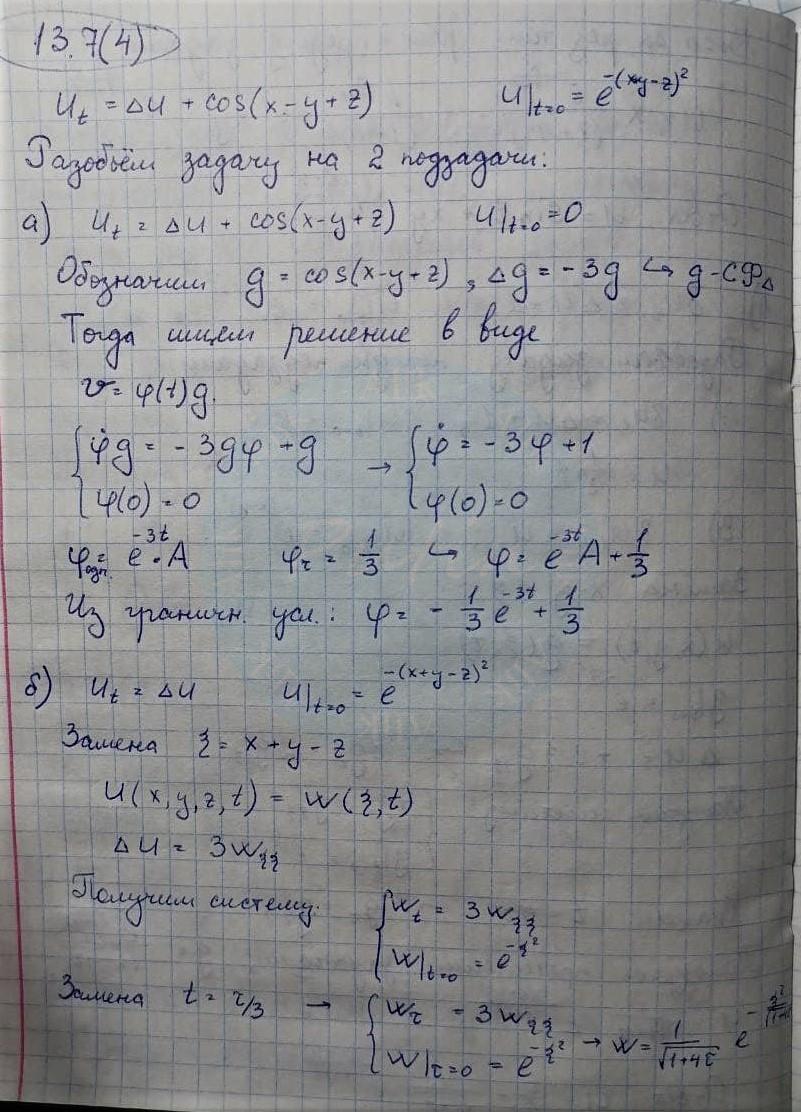 13.7(4)
u_t = Δu + cos(x-y+z)   u|_{t=0} = e^{-(x+y-z)^2}
Разобьём задачу на 2 подзадачи:
а) u_t = Δu + cos(x-y+z)   u|_{t=0} = 0
Обозначим g = cos(x-y+z), Δg = -3g ↪ g-СФ_Δ
Тогда ищем решение в виде
v = φ(t)g.
{ φ̇g = -3gφ + g → { φ̇ = -3φ + 1
φ(0) = 0   φ(0) = 0
φ_{одн.} = e^{-3t}·A   φ_ч = 1/3 ↪ φ = e^{-3t}A + 1/3
Из граничн. усл.: φ = -1/3 e^{-3t} + 1/3
б) u_t = Δu   u|_{t=0} = e^{-(x+y-z)^2}
Замена ξ = x + y - z
u(x,y,z,t) = w(ξ,t)
Δu = 3w_{ξξ}
Получим систему: { w_t = 3w_{ξξ}
w|_{t=0} = e^{-ξ^2}
Замена t = τ/3 → { w_τ = 3w_{ξξ}
w|_{τ=0} = e^{-ξ^2} → w = 1/√(1+4τ) e